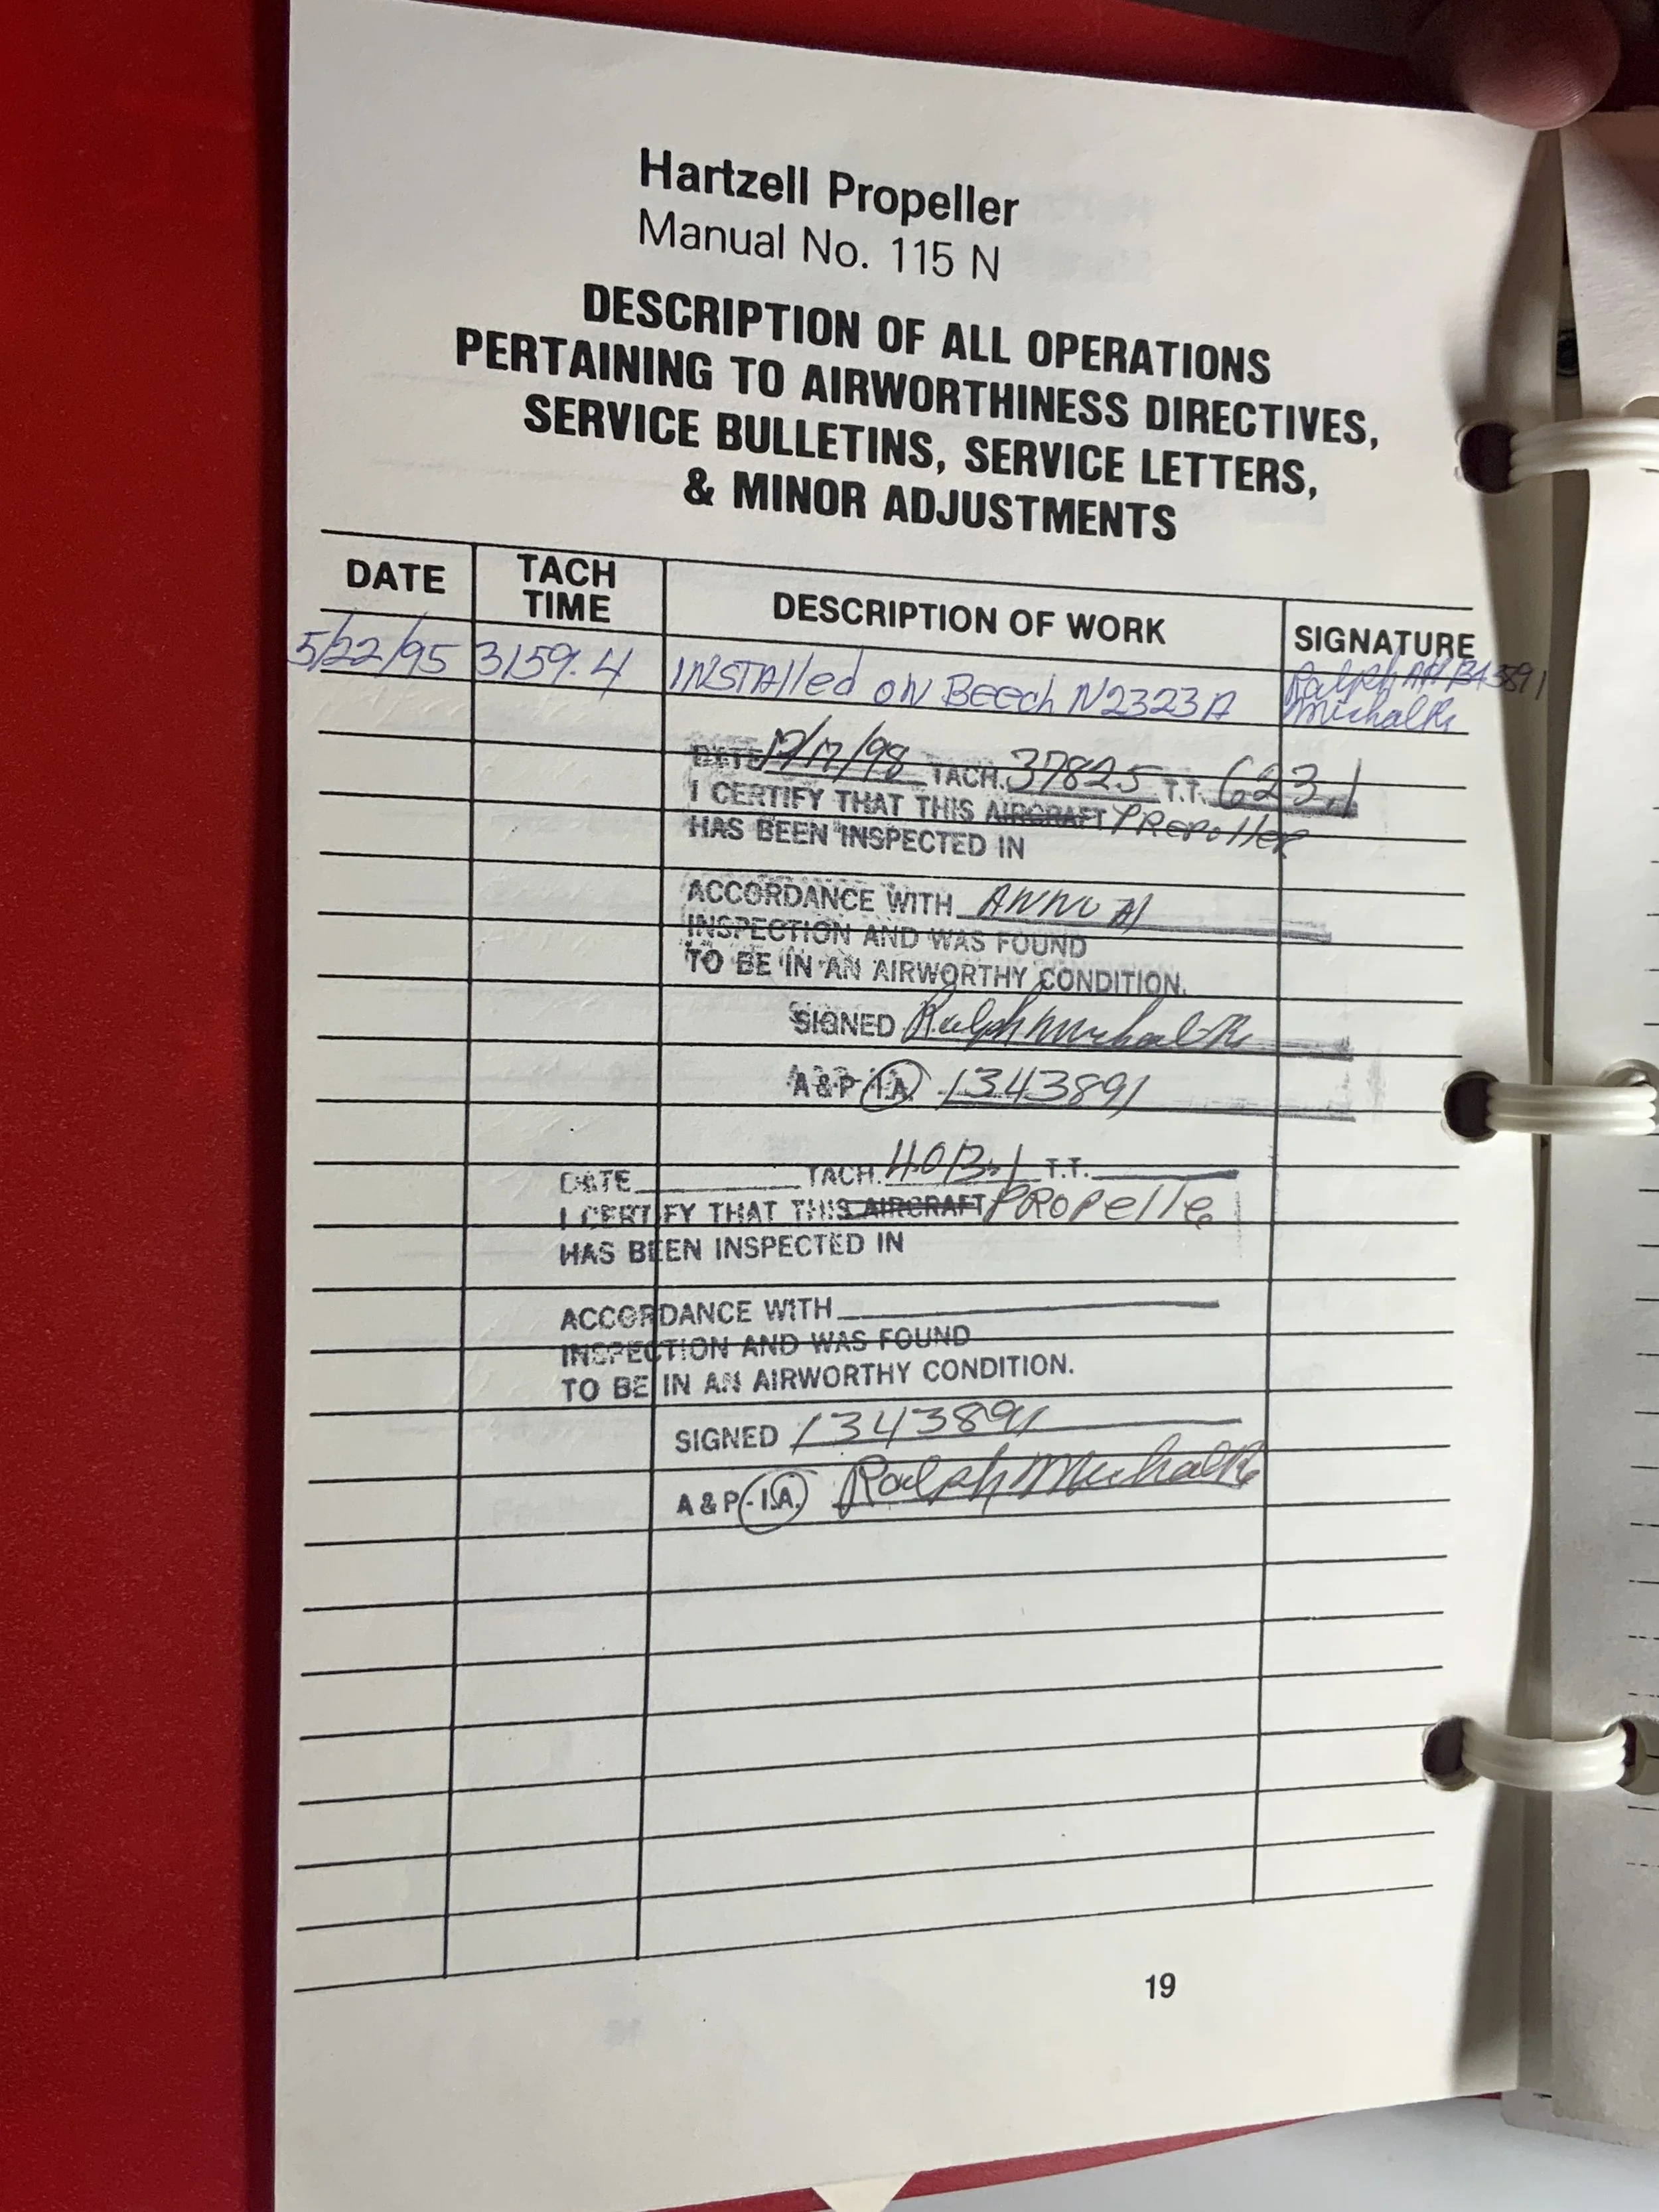 Hartzell Propeller
Manual No. 115 N
DESCRIPTION OF ALL OPERATIONS
PERTAINING TO AIRWORTHINESS DIRECTIVES,
SERVICE BULLETINS, SERVICE LETTERS,
& MINOR ADJUSTMENTS
DATE TACH TIME DESCRIPTION OF WORK SIGNATURE
5/22/95 3159.4 INSTAlled ON Beech N2323A Ralph
DATE TACH. 3782.5 T.T. 623.1
I CERTIFY THAT THIS AIRCRAFT PRopeller
HAS BEEN INSPECTED IN
ACCORDANCE WITH ANNUAl
INSPECTION AND WAS FOUND
TO BE IN AN AIRWORTHY CONDITION.
SIGNED Ralph
A & P-I.A. 1343891
DATE TACH. 4013.1 T.T.
I CERTIFY THAT THIS AIRCRAFT PROpelle
HAS BEEN INSPECTED IN
ACCORDANCE WITH
INSPECTION AND WAS FOUND
TO BE IN AN AIRWORTHY CONDITION.
SIGNED 1343891
A & P-I.A. Ralph
19